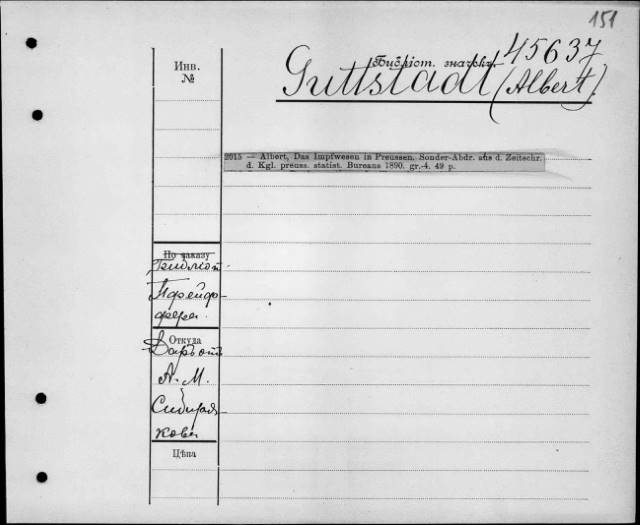 151
Инв.
№
Библіот. значекъ.
45637
Guttstadt (Albert).
2015 — Albert, Das Impfwesen in Preussen. Sonder-Abdr. aus d. Zeitschr.
d. Kgl. preuss. statist. Bureaus 1890. gr.-4. 49 p.
По заказу
Библіот.
Пфейф-
фера.
Откуда
Даръ отъ
А. М.
Сибиря-
кова
Цѣна